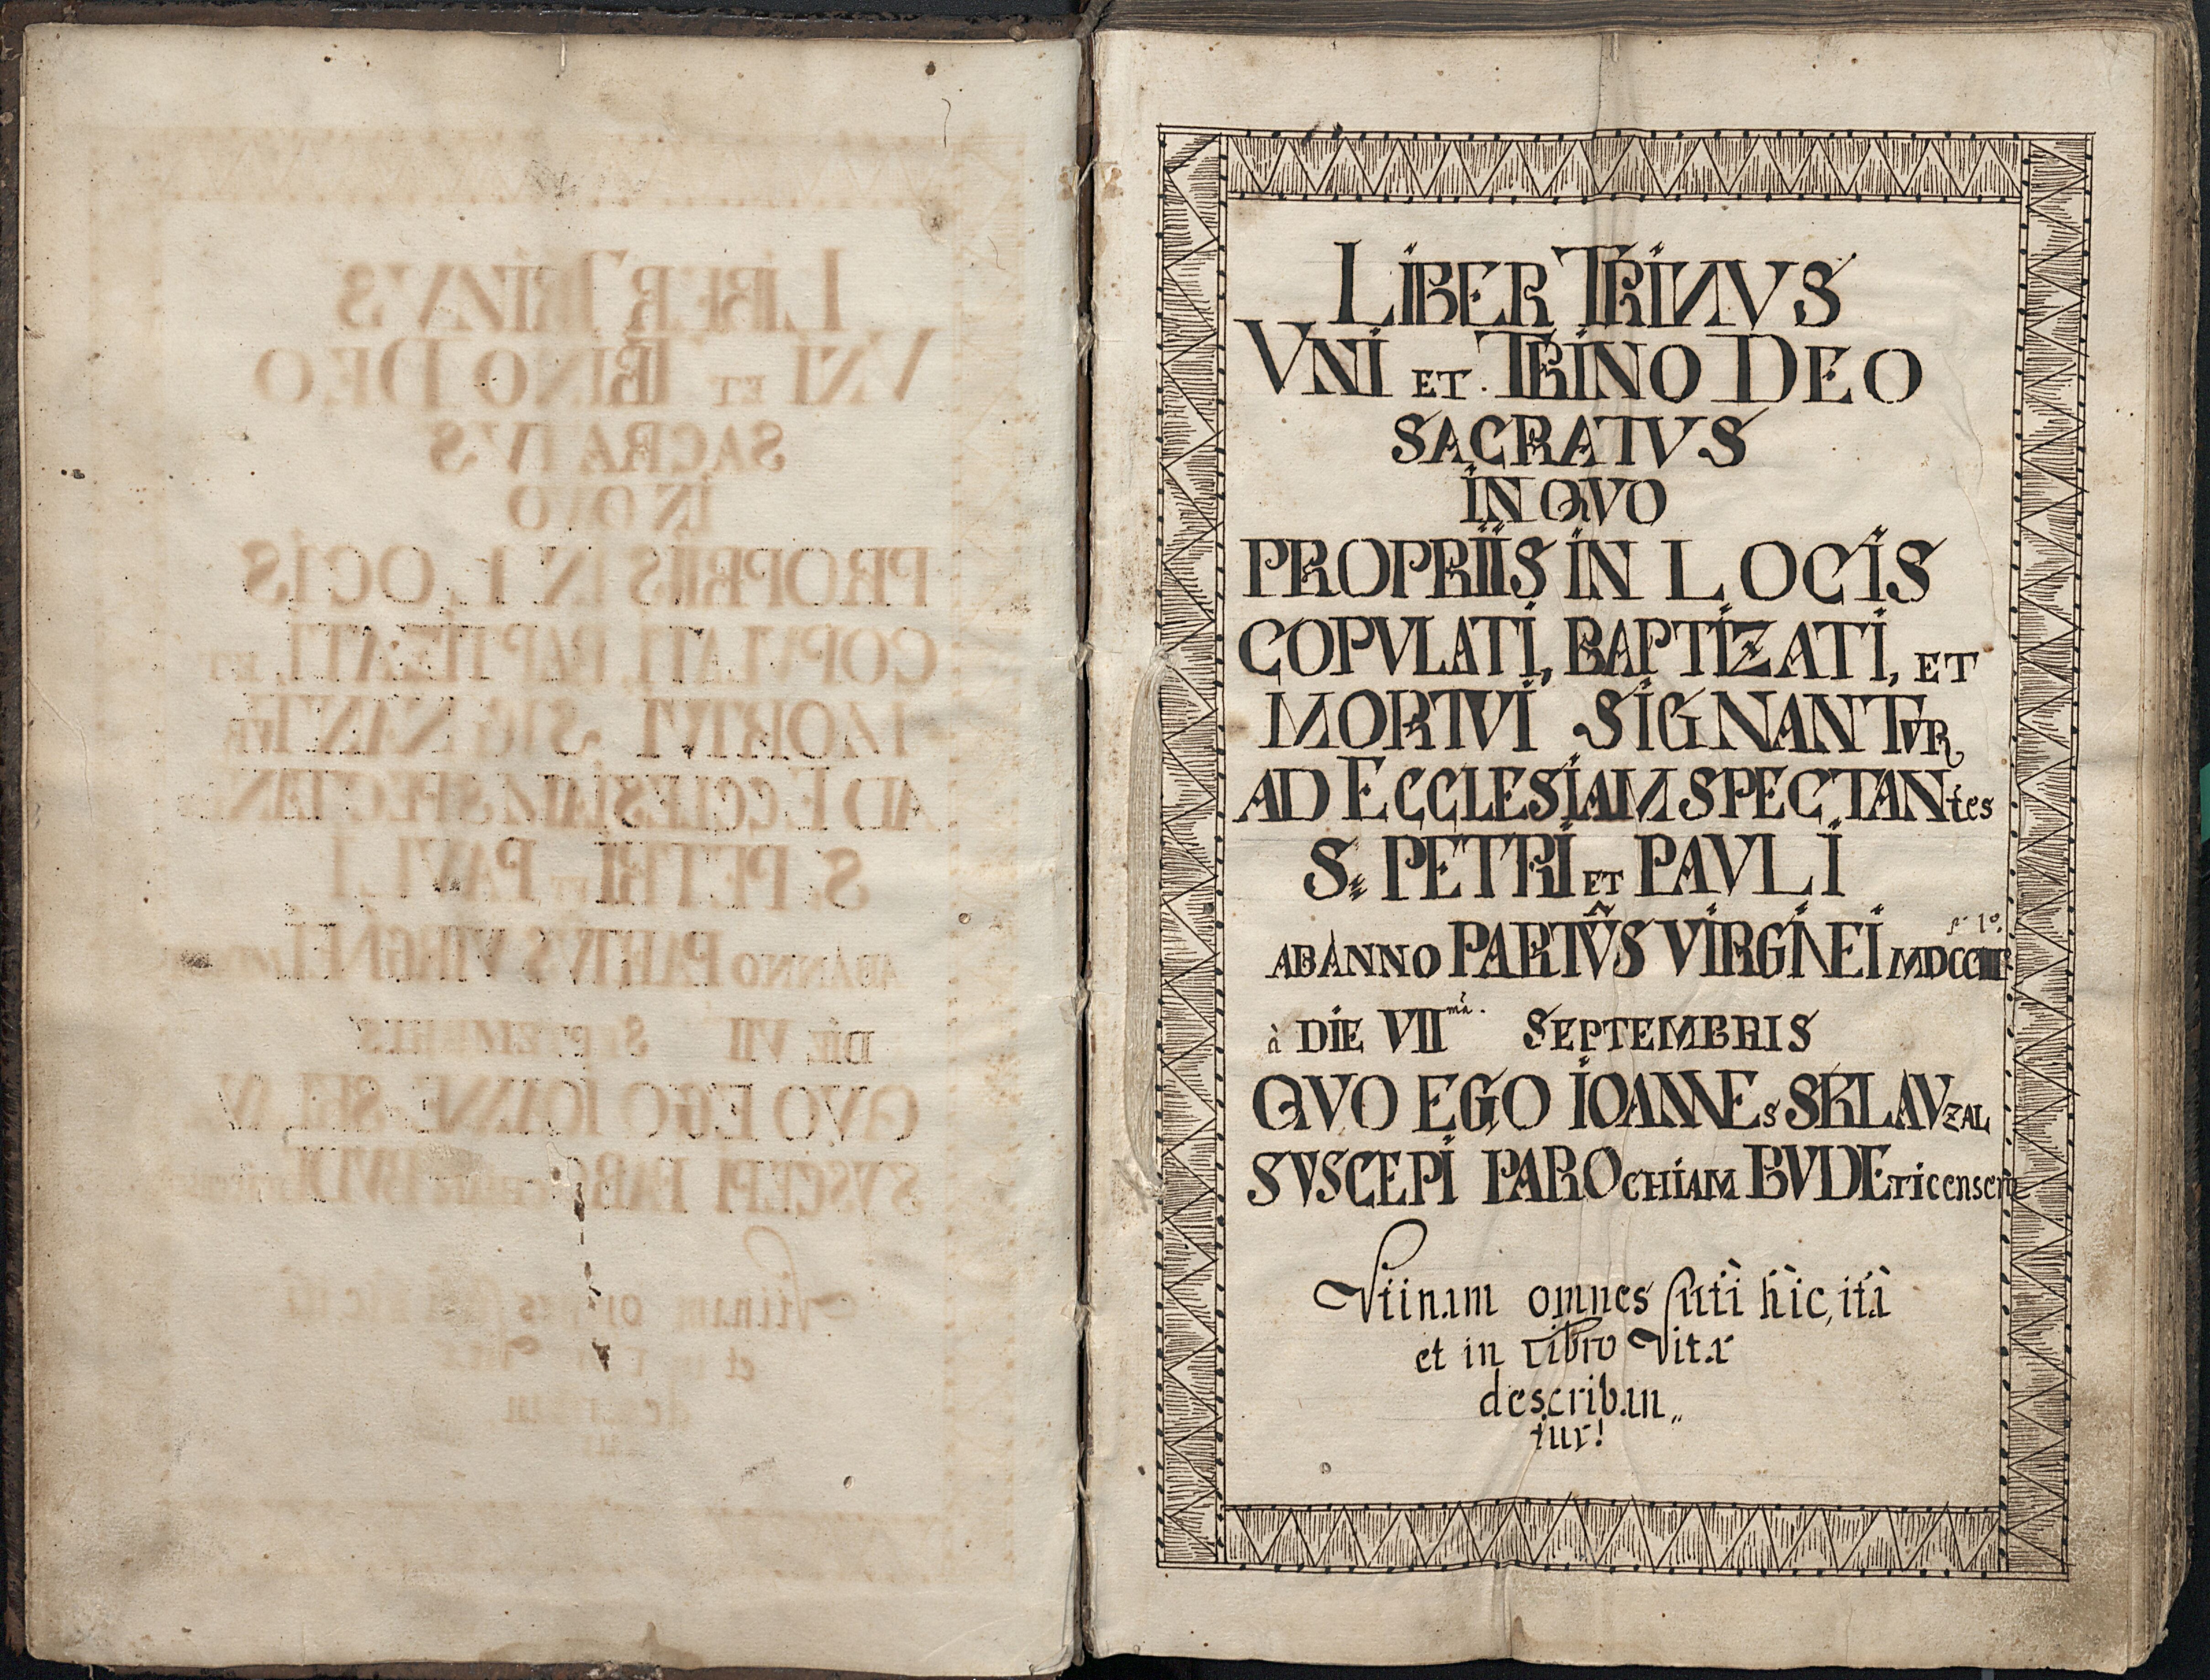 LIBER TRINVS
VNI ET TRINO DEO
SACRATVS
IN QVO
PROPRIIS IN LOCIS
COPVLATI, BAPTIZATI, ET
MORTVI SIGNANTVR
AD ECCLESIAM SPECTANtes
S. PETRI ET PAVLI
AB ANNO PARTVS VIRGINEI
à DIE VII mâ. SEPTEMBRIS
QVO EGO IOANNEs
SVSCEPI PAROCHIAM BVDETicensem
Vtinam omnes sicuti hic, ità
et in Libro Vitæ
describan„
tur!